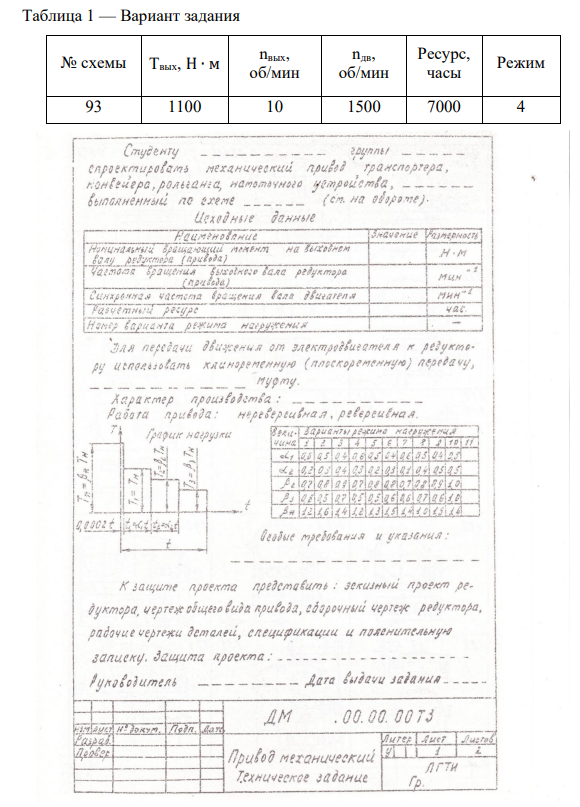 Таблица 1 — Вариант задания
№ схемы Tвых, Н · м nвых, об/мин nдв, об/мин Ресурс, часы Режим
93 1100 10 1500 7000 4
Студенту группы
спроектировать механический привод транспортера,
конвейера, рольганга, намоточного устройства,
выполненный по схеме (см. на обороте).
Исходные данные
Наименование Значение Размерность
Номинальный вращающий момент на выходном
валу редуктора (привода) Н·м
Частота вращения выходного вала редуктора
(привода) мин⁻¹
Синхронная частота вращения вала двигателя мин⁻¹
Расчетный ресурс час.
Номер варианта режима нагружения —
Для передачи движения от электродвигателя к редукто-
ру использовать клиноременную (плоскоременную) передачу,
муфту.
Характер производства:
Работа привода: нереверсивная, реверсивная.
T График нагрузки
Вели-
чина Варианты режимов нагружения
1 2 3 4 5 6 7 8 9 10 11
t
Особые требования и указания:
К защите проекта представить: эскизный проект ре-
дуктора, чертеж общего вида привода, сборочный чертеж редуктора,
рабочие чертежи деталей, спецификации и пояснительную
записку. Защита проекта:
Руководитель Дата выдачи задания
ДМ .00.00.00ТЗ
Изм Лист № докум. Подп. Дата
Разраб.
Провер.
Привод механический
Техническое задание
Литер Лист Листов
У 1 2
ЛГТИ
Гр.